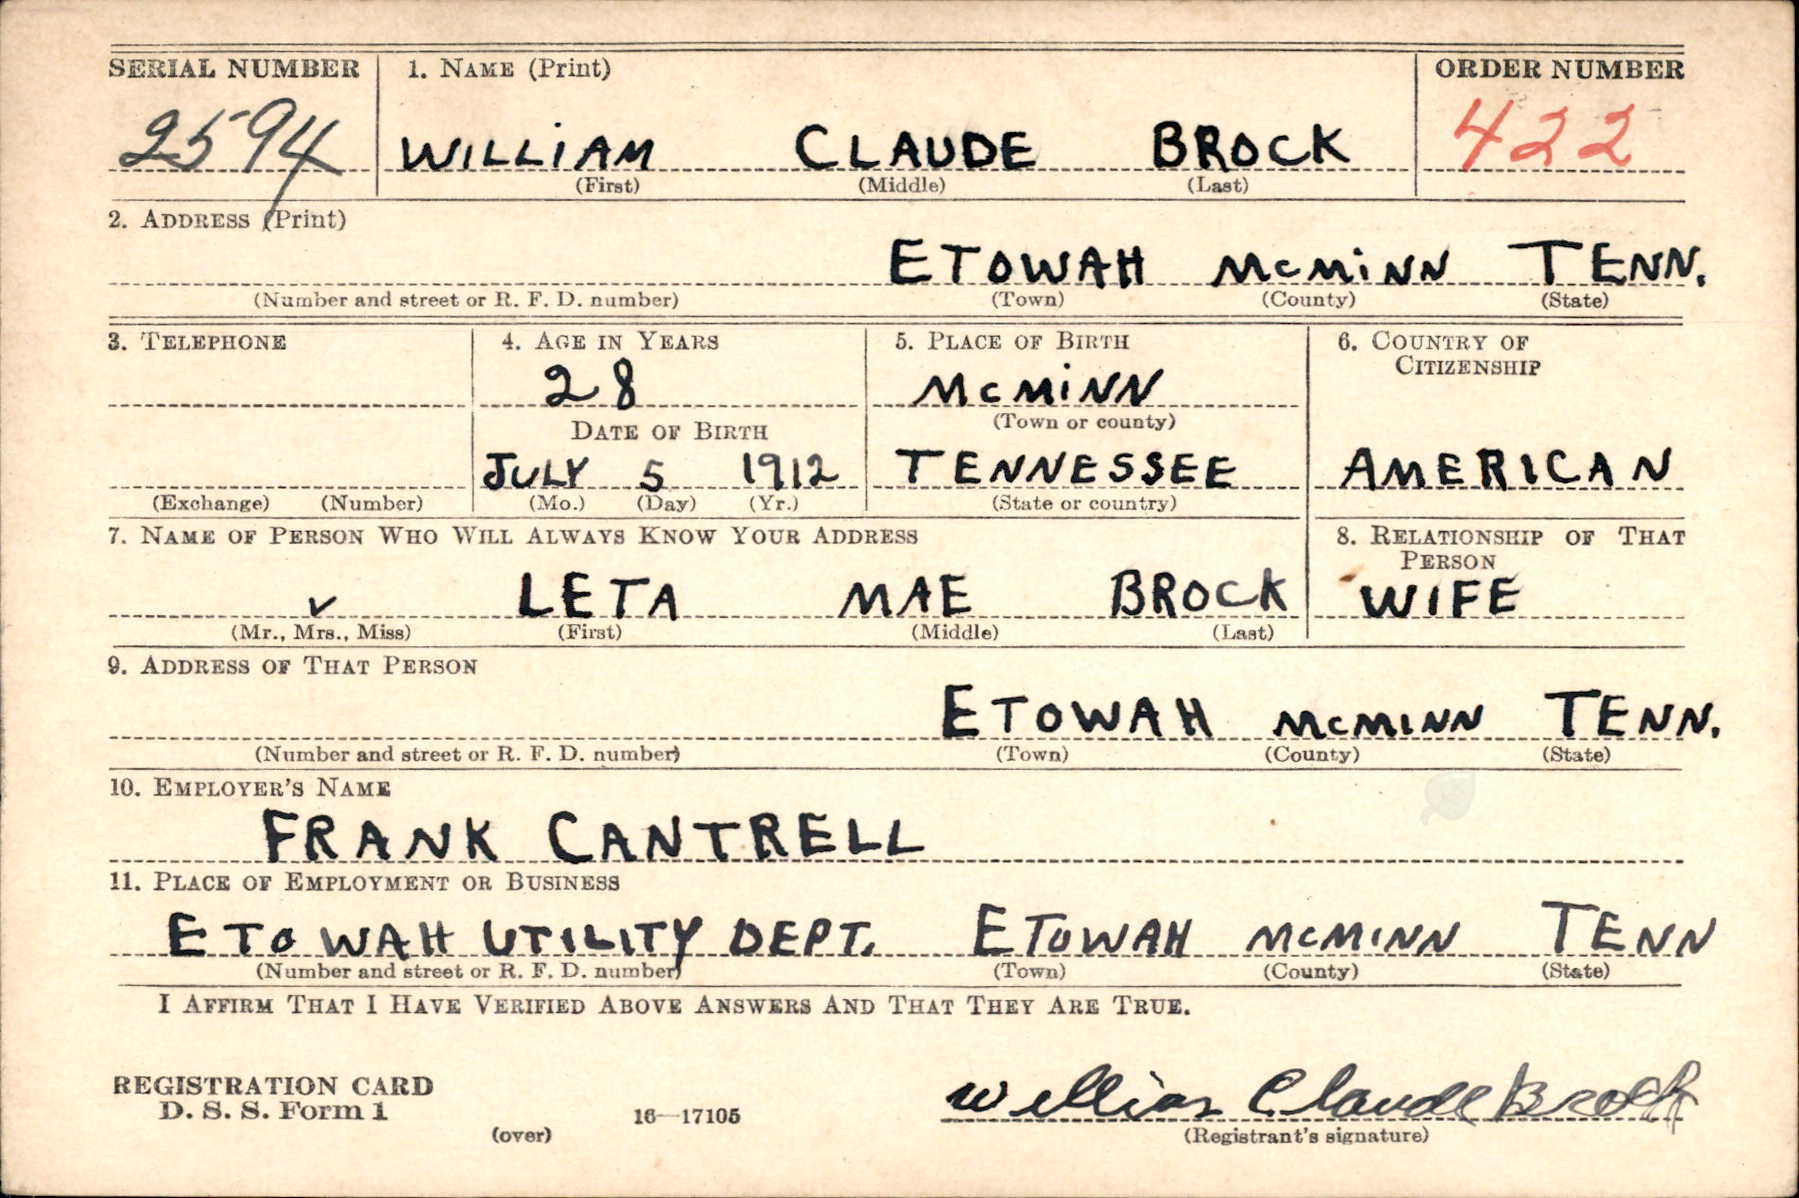 SERIAL NUMBER 1. NAME (Print) ORDER NUMBER
2594 WILLIAM CLAUDE BROCK 422
(First) (Middle) (Last)
2. ADDRESS (Print)
ETOWAH McMINN TENN.
(Number and street or R. F. D. number) (Town) (County) (State)
3. TELEPHONE 4. AGE IN YEARS 5. PLACE OF BIRTH 6. COUNTRY OF
CITIZENSHIP
28 McMINN
(Town or county)
DATE OF BIRTH
JULY 5 1912 TENNESSEE AMERICAN
(Exchange) (Number) (Mo.) (Day) (Yr.) (State or country)
7. NAME OF PERSON WHO WILL ALWAYS KNOW YOUR ADDRESS 8. RELATIONSHIP OF THAT
PERSON
✓ LETA MAE BROCK WIFE
(Mr., Mrs., Miss) (First) (Middle) (Last)
9. ADDRESS OF THAT PERSON
ETOWAH McMINN TENN.
(Number and street or R. F. D. number) (Town) (County) (State)
10. EMPLOYER'S NAME
FRANK CANTRELL
11. PLACE OF EMPLOYMENT OR BUSINESS
ETOWAH UTILITY DEPT. ETOWAH McMINN TENN
(Number and street or R. F. D. number) (Town) (County) (State)
I AFFIRM THAT I HAVE VERIFIED ABOVE ANSWERS AND THAT THEY ARE TRUE.
REGISTRATION CARD
D. S. S. Form 1 16—17105 William Claude Brock
(over) (Registrant's signature)